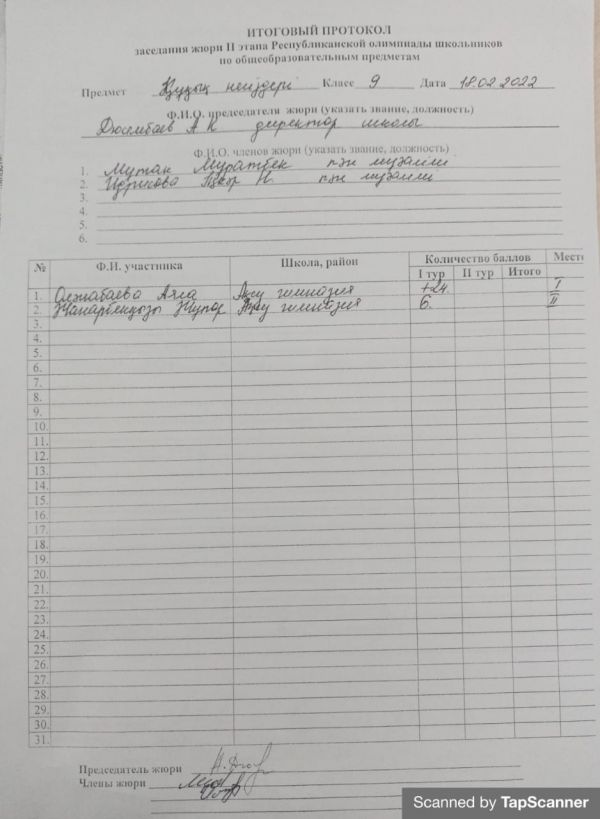 ИТОГОВЫЙ ПРОТОКОЛ
заседания жюри II этапа Республиканской олимпиады школьников
по общеобразовательным предметам
Предмет Құқық негіздері Класс 9 Дата 18.02.2022
Ф.И.О. председателя жюри (указать звание, должность)
Дюсембаев А К директор школы
Ф.И.О. членов жюри (указать звание, должность)
1. Мутан Муратбек пән мұғалімі
2. пән мұғалімі
3.
4.
5.
6.
№ Ф.И. участника Школа, район Количество баллов Место
I тур II тур Итого
1. Олжабаева Аяла Ақсу гимназия +24. I
2. Жанарбекқызы Жұпар Ақсу гимназия 6. II
3.
4.
5.
6.
7.
8.
9.
10.
11.
12.
13.
14.
15.
16.
17.
18.
19.
20.
21.
22.
23.
24.
25.
26.
27.
28.
29.
30.
31.
Председатель жюри
Члены жюри
Scanned by TapScanner